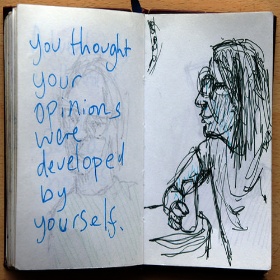 you thought
your
opinions
were
developed
by
yourself.